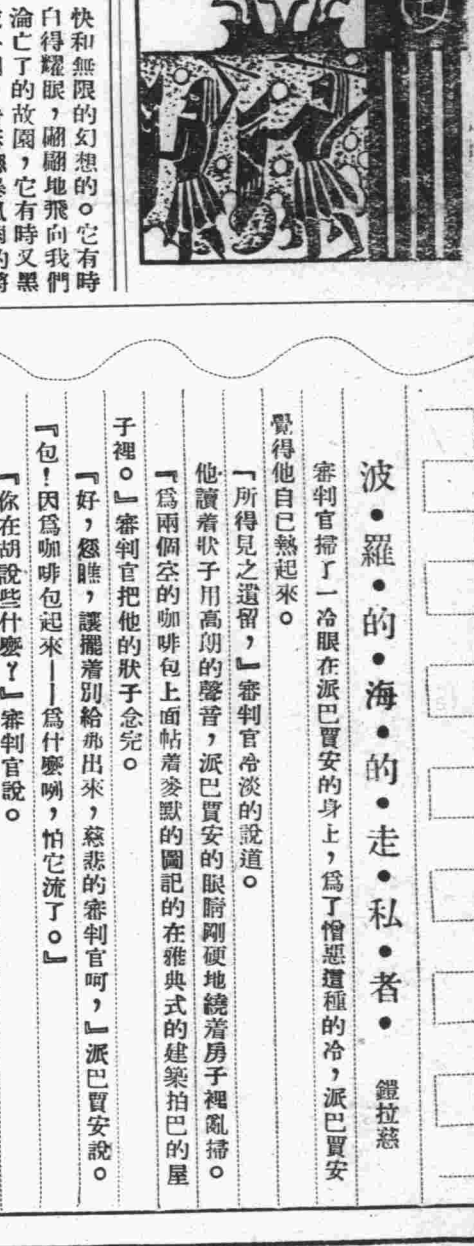 快和無限的幻想的。它有時
白得耀眼，翩翩地飛向我們
淪亡了的故園，它有時又黑
波•羅•的•海•的•走•私•者•　鎧拉慈
審判官掃了一冷眼在派巴賈安的身上，爲了憎惡這種的冷，派巴賈安
覺得他自已熱起來。
『所得見之遺留，』審判官冷淡的說道。
他讀着狀子用高朗的聲音，派巴賈安的眼睛剛硬地繞着房子裡亂掃。
『爲兩個空的咖啡包上面帖着麥默的圖記的在雅典式的建築拍巴的屋
子裡。』審判官把他的狀子念完。
『好，您瞧，讓擺着別給弗出來，慈悲的審判官呵，』派巴賈安說。
『包！因爲咖啡包起來——爲什麼咧，怕它流了。』
『你在胡說些什麼？』審判官說。